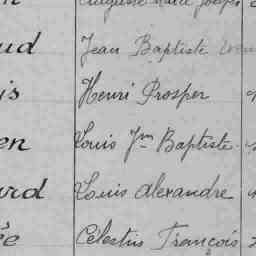 Auguste Marie Joseph
ud Jean Baptiste
is Henri Prosper
en Louis Jn Baptiste
ard Louis Alexandre
ée Célestin François